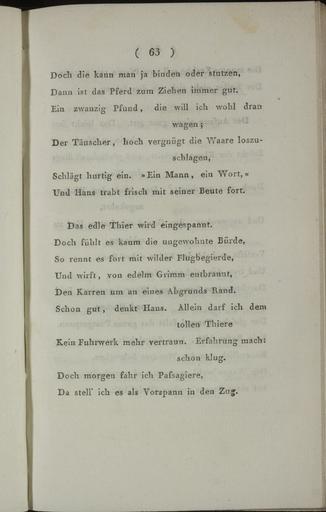 ( 63 )
Doch die kann man ja binden oder stutzen,
Dann ist das Pferd zum Ziehen immer gut.
Ein zwanzig Pfund, die will ich wohl dran
wagen;
Der Täuscher, hoch vergnügt die Waare loszu-
schlagen,
Schlägt hurtig ein. »Ein Mann, ein Wort,«
Und Hans trabt frisch mit seiner Beute fort.
Das edle Thier wird eingespannt.
Doch fühlt es kaum die ungewohnte Bürde,
So rennt es fort mit wilder Flugbegierde,
Und wirft, von edelm Grimm entbrannt,
Den Karren um an eines Abgrunds Rand.
Schon gut, denkt Hans. Allein darf ich dem
tollen Thiere
Kein Fuhrwerk mehr vertraun. Erfahrung macht
schon klug.
Doch morgen fahr ich Paſsagiere,
Da stell' ich es als Vorspann in den Zug.